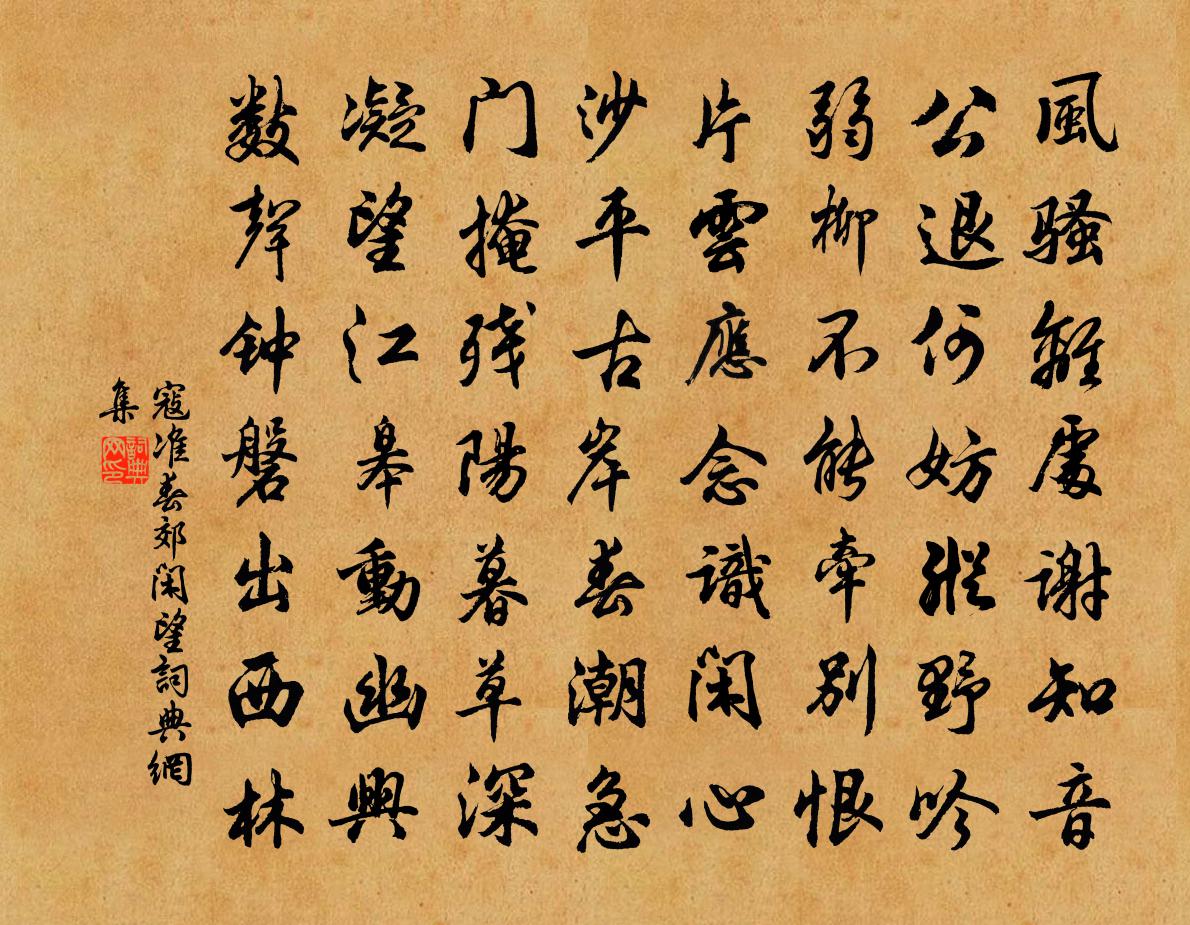 風骚雖處謝知音
公退何妨縱野吟
弱柳不能牽别恨
片雲應念識闲心
沙平古岸春潮急
门掩残陽暮草深
凝望江皋動幽興
數聲钟磐出西林
寇准春郊闲望詞典網
集
詞典网印